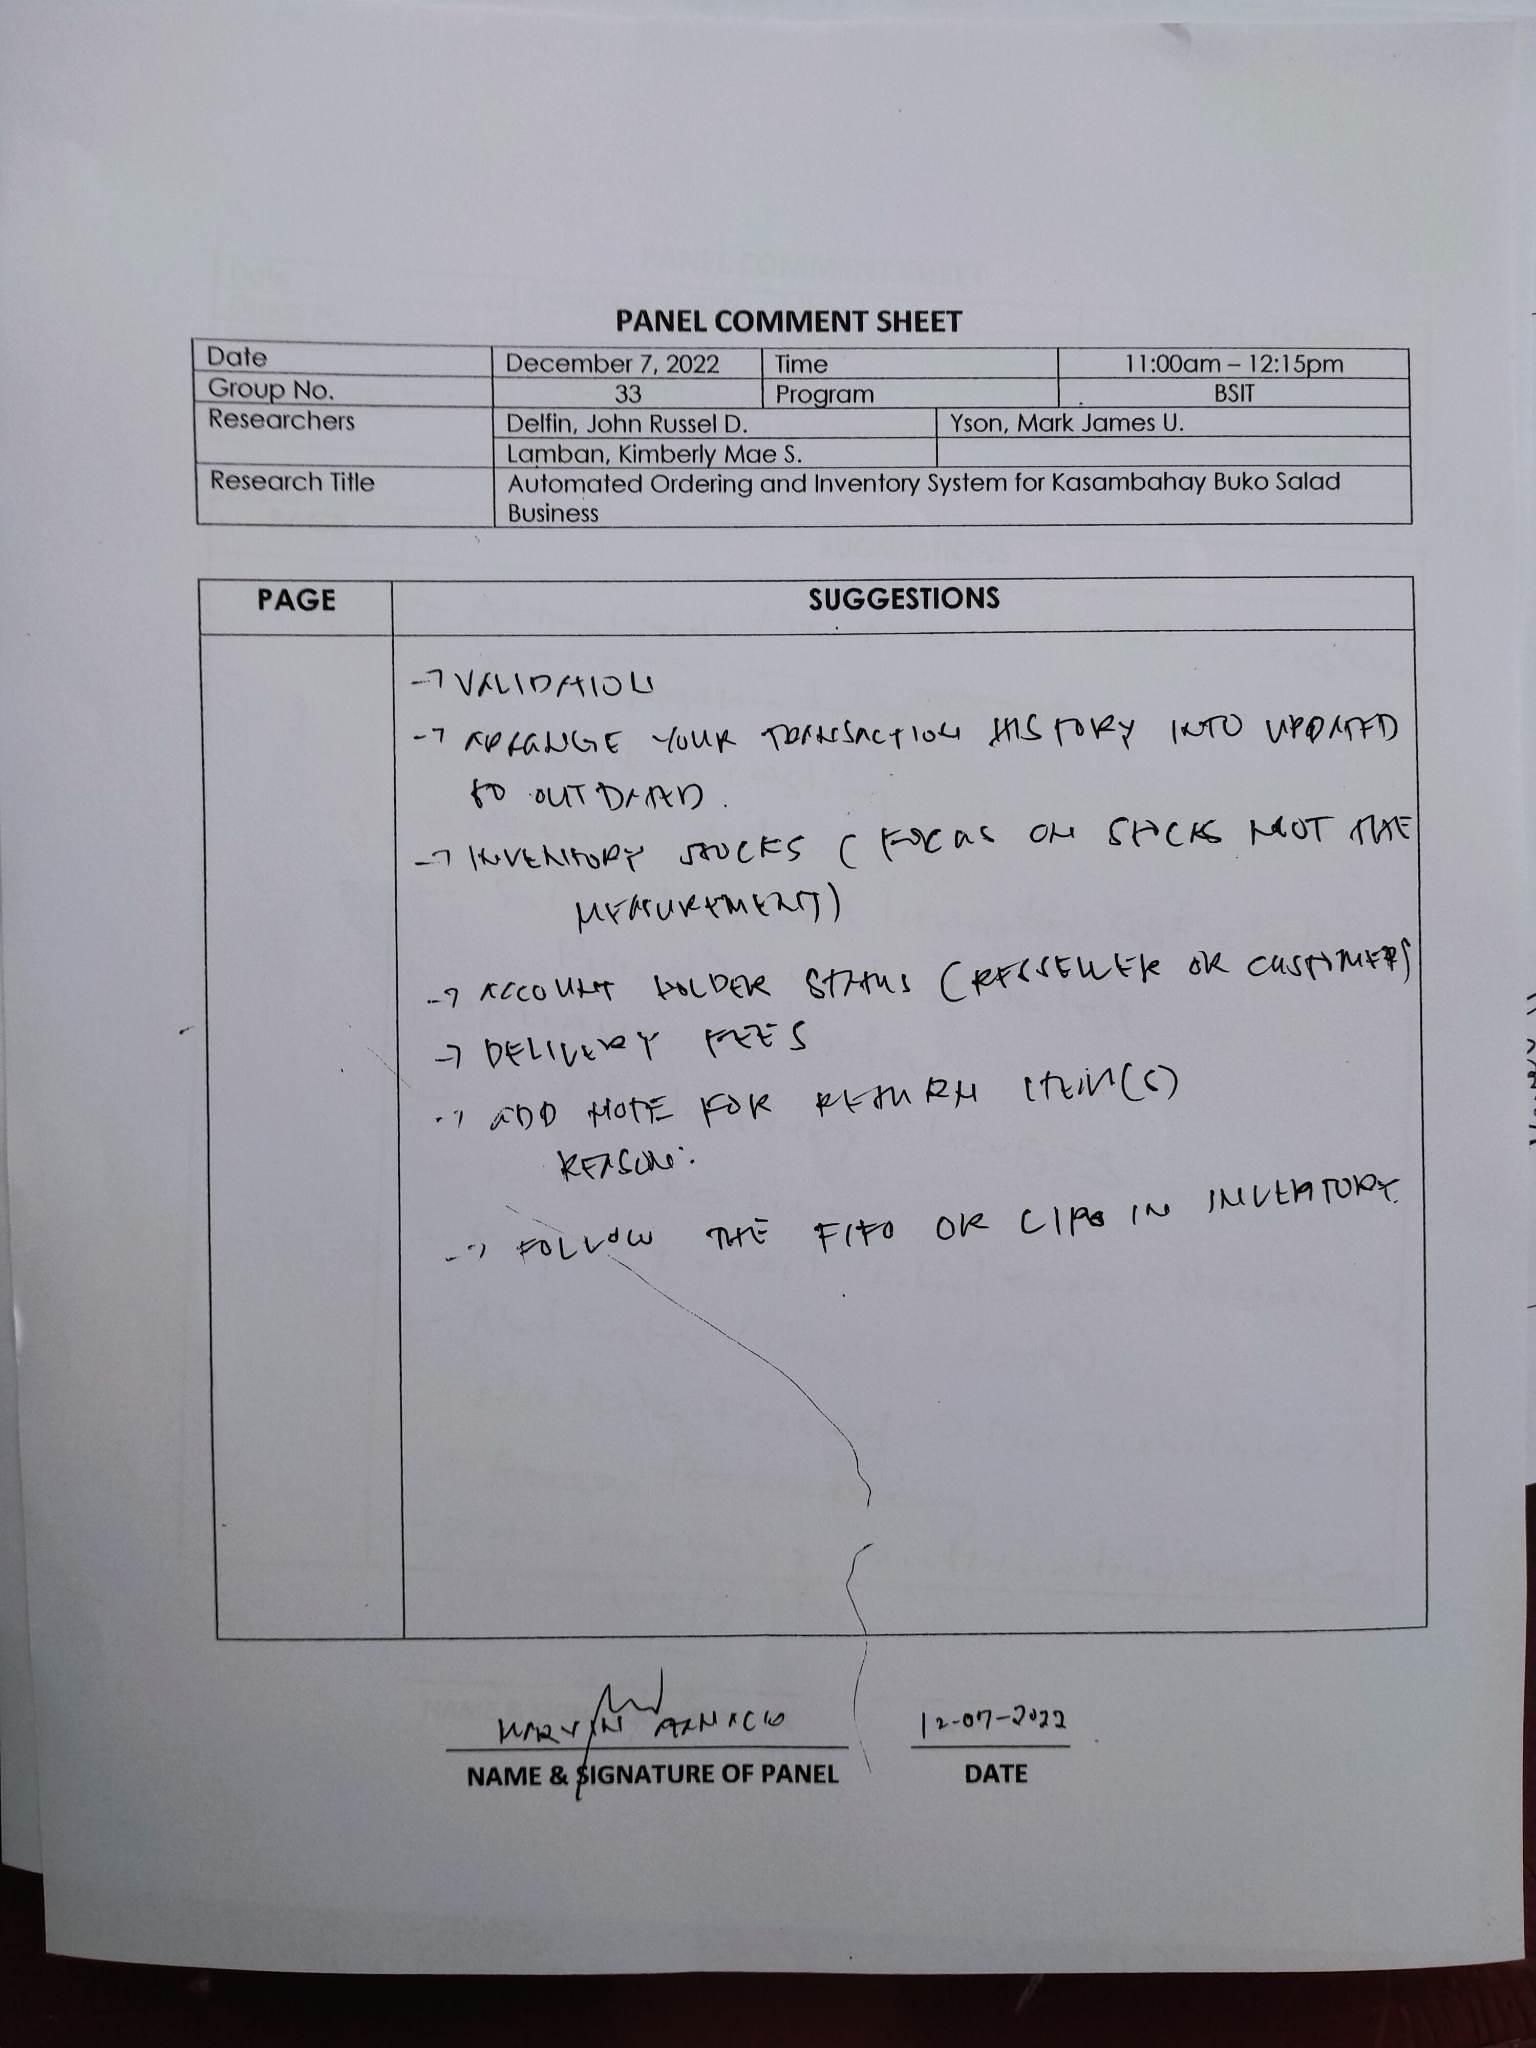 PANEL COMMENT SHEET
Date December 7, 2022 Time 11:00am – 12:15pm
Group No. 33 Program BSIT
Researchers Delfin, John Russel D. Yson, Mark James U.
Lamban, Kimberly Mae S.
Research Title Automated Ordering and Inventory System for Kasambahay Buko Salad
Business
PAGE SUGGESTIONS
→ VALIDATION
→ ARRANGE YOUR TRANSACTION HISTORY INTO UPDATED
TO OUTDATED.
→ INVENTORY STOCKS ( FOCUS ON STOCKS NOT THE
MEASUREMENT)
→ ACCOUNT HOLDER STATUS (RESSELLER OR CUSTOMER)
→ DELIVERY FEES
→ ADD NOTE FOR RETURN ITEM(S)
REASON:
→ FOLLOW THE FIFO OR LIFO IN INVENTORY.
MARVIN 12-07-2022
NAME & SIGNATURE OF PANEL DATE